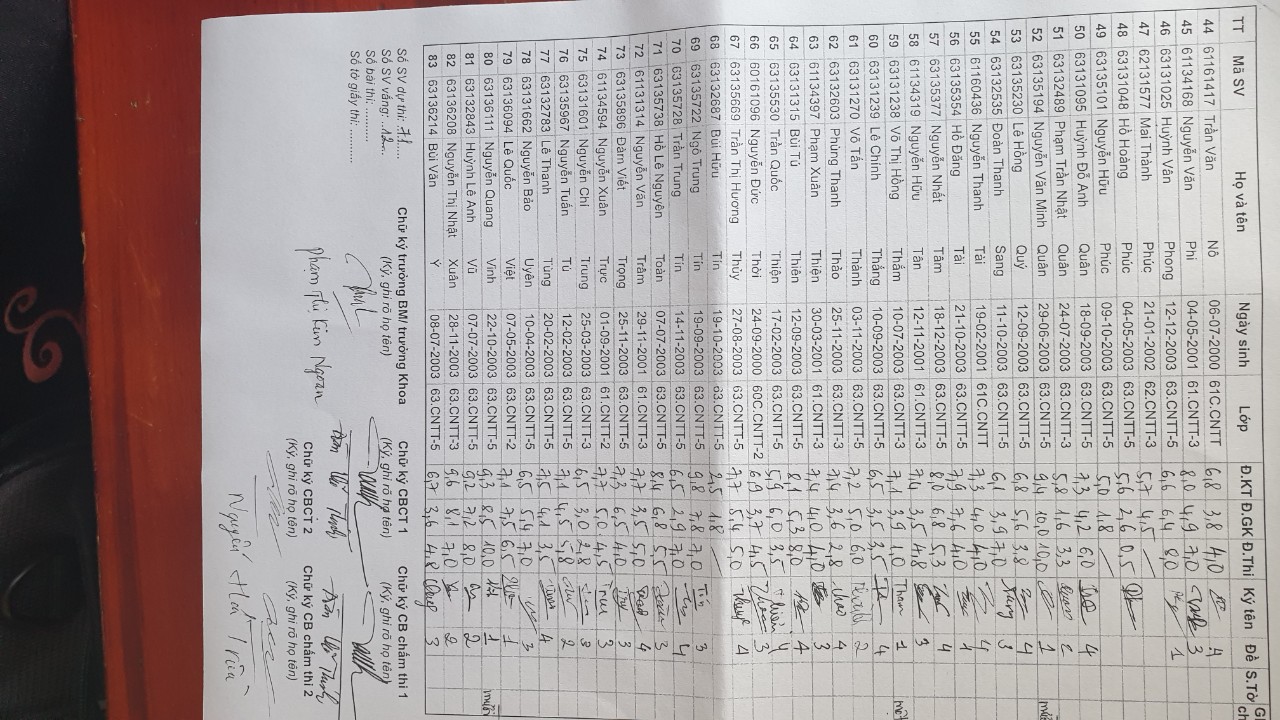 TT Mã SV Họ và tên Ngày sinh Lớp Đ.KT Đ.GK Đ.Thi Ký tên Đề S.Tờ
44 61161417 Trần Văn Nô 06-07-2000 61C.CNTT 6,8 3,8 4,0 4
45 61134168 Nguyễn Văn Phi 04-05-2001 61.CNTT-3 8,0 4,9 7,0 3
46 63131025 Huỳnh Vân Phong 12-12-2003 63.CNTT-5 6,6 6,4 8,0 1
47 62131577 Mai Thành Phúc 21-01-2002 62.CNTT-3 5,7 4,5 —
48 63131048 Hồ Hoàng Phúc 04-05-2003 63.CNTT-5 5,6 2,6 0,5
49 63135101 Nguyễn Hữu Phúc 09-10-2003 63.CNTT-5 5,0 1,8 —
50 63131095 Huỳnh Đỗ Anh Quân 18-09-2003 63.CNTT-5 7,3 4,2 6,0 4
51 63132489 Phạm Trần Nhật Quân 24-07-2003 63.CNTT-3 5,8 1,6 3,3 Quan 2
52 63135194 Nguyễn Văn Minh Quân 29-06-2003 63.CNTT-5 9,4 10,0 10,0 1
53 63135230 Lê Hồng Quý 12-09-2003 63.CNTT-5 6,8 5,6 3,8 4
54 63132535 Đoàn Thanh Sang 11-10-2003 63.CNTT-5 6,1 3,9 7,0 Sang 3
55 61160436 Nguyễn Thanh Tài 19-02-2001 61C.CNTT 7,3 4,0 4,0 4
56 63135354 Hồ Đăng Tài 21-10-2003 63.CNTT-5 7,9 7,6 4,0
57 63135377 Nguyễn Nhất Tâm 18-12-2003 63.CNTT-5 8,0 6,8 5,3 4
58 61134319 Nguyễn Hữu Tân 12-11-2001 61.CNTT-3 7,4 3,5 4,8 3
59 63131238 Võ Thị Hồng Thắm 10-07-2003 63.CNTT-3 7,1 3,9 1,0 Tham 1 một
60 63131239 Lê Chính Thắng 10-09-2003 63.CNTT-5 6,5 3,5 3,5 4
61 63131270 Võ Tấn Thành 03-11-2003 63.CNTT-5 7,2 5,0 6,0 2
62 63132603 Phùng Thanh Thảo 25-11-2003 63.CNTT-3 7,4 3,6 2,8 thao 4
63 61134397 Phạm Xuân Thiện 30-03-2001 61.CNTT-3 7,4 4,0 4,0 3
64 63131315 Bùi Tú Thiên 12-09-2003 63.CNTT-5 8,1 5,3 8,0 4
65 63135530 Trần Quốc Thiện 17-02-2003 63.CNTT-5 5,9 6,0 3,5 thiện 4
66 60161096 Nguyễn Đức Thời 24-09-2000 60C.CNTT-2 6,9 3,7 4,5 3
67 63135669 Trần Thị Hương Thủy 27-08-2003 63.CNTT-5 7,7 5,4 5,0 4
68 63132687 Bùi Hữu Tín 19-10-2003 63.CNTT-5 2,5 1,8 —
69 63135722 Ngô Trung Tín 19-09-2003 63.CNTT-5 9,8 7,8 7,0 Tín 3
70 63135728 Trần Trung Tín 14-11-2003 63.CNTT-5 6,5 2,9 7,0 4
71 63135738 Hồ Lê Nguyên Toàn 07-07-2003 63.CNTT-5 8,4 6,8 5,5 3
72 61131314 Nguyễn Văn Trâm 29-11-2001 61.CNTT-3 7,7 3,5 5,0 4
73 63135896 Đàm Viết Trọng 25-11-2003 63.CNTT-5 7,3 6,5 4,0 3
74 61134594 Nguyễn Xuân Trực 01-09-2001 61.CNTT-2 7,7 5,0 4,5 3
75 63131601 Nguyễn Chí Trung 25-03-2003 63.CNTT-3 6,5 3,0 2,8 3
76 63135967 Nguyễn Tuấn Tú 12-02-2003 63.CNTT-5 7,1 4,5 5,8 2
77 63132783 Lê Thanh Tùng 20-02-2003 63.CNTT-5 7,5 4,1 3,5 4
78 63131662 Nguyễn Bảo Uyên 10-04-2003 63.CNTT-5 6,5 5,4 7,0 3
79 63136094 Lê Quốc Việt 07-05-2003 63.CNTT-2 7,1 7,5 6,5 1
80 63136111 Nguyễn Quang Vinh 22-10-2003 63.CNTT-5 9,3 8,5 10,0 1 mười
81 63132843 Huỳnh Lê Anh Vũ 07-07-2003 63.CNTT-5 9,2 7,2 8,0 2
82 63136208 Nguyễn Thị Nhật Xuân 28-11-2003 63.CNTT-3 9,6 8,1 7,0 2
83 63136214 Bùi Văn Ý 08-07-2003 63.CNTT-5 6,7 3,6 4,8 3
Số SV dự thi: 71 Chữ ký trưởng BM/ trưởng Khoa Chữ ký CBCT 1 Chữ ký CB chấm thi 1
Số SV vắng: 12 (Ký, ghi rõ họ tên) (Ký, ghi rõ họ tên) (Ký, ghi rõ họ tên)
Số bài thi: ..........
Số tờ giấy thi: ..........
Phạm Thị Kim Ngoan
Chữ ký CBCT 2 Chữ ký CB chấm thi 2
(Ký, ghi rõ họ tên) (Ký, ghi rõ họ tên)
Nguyễn